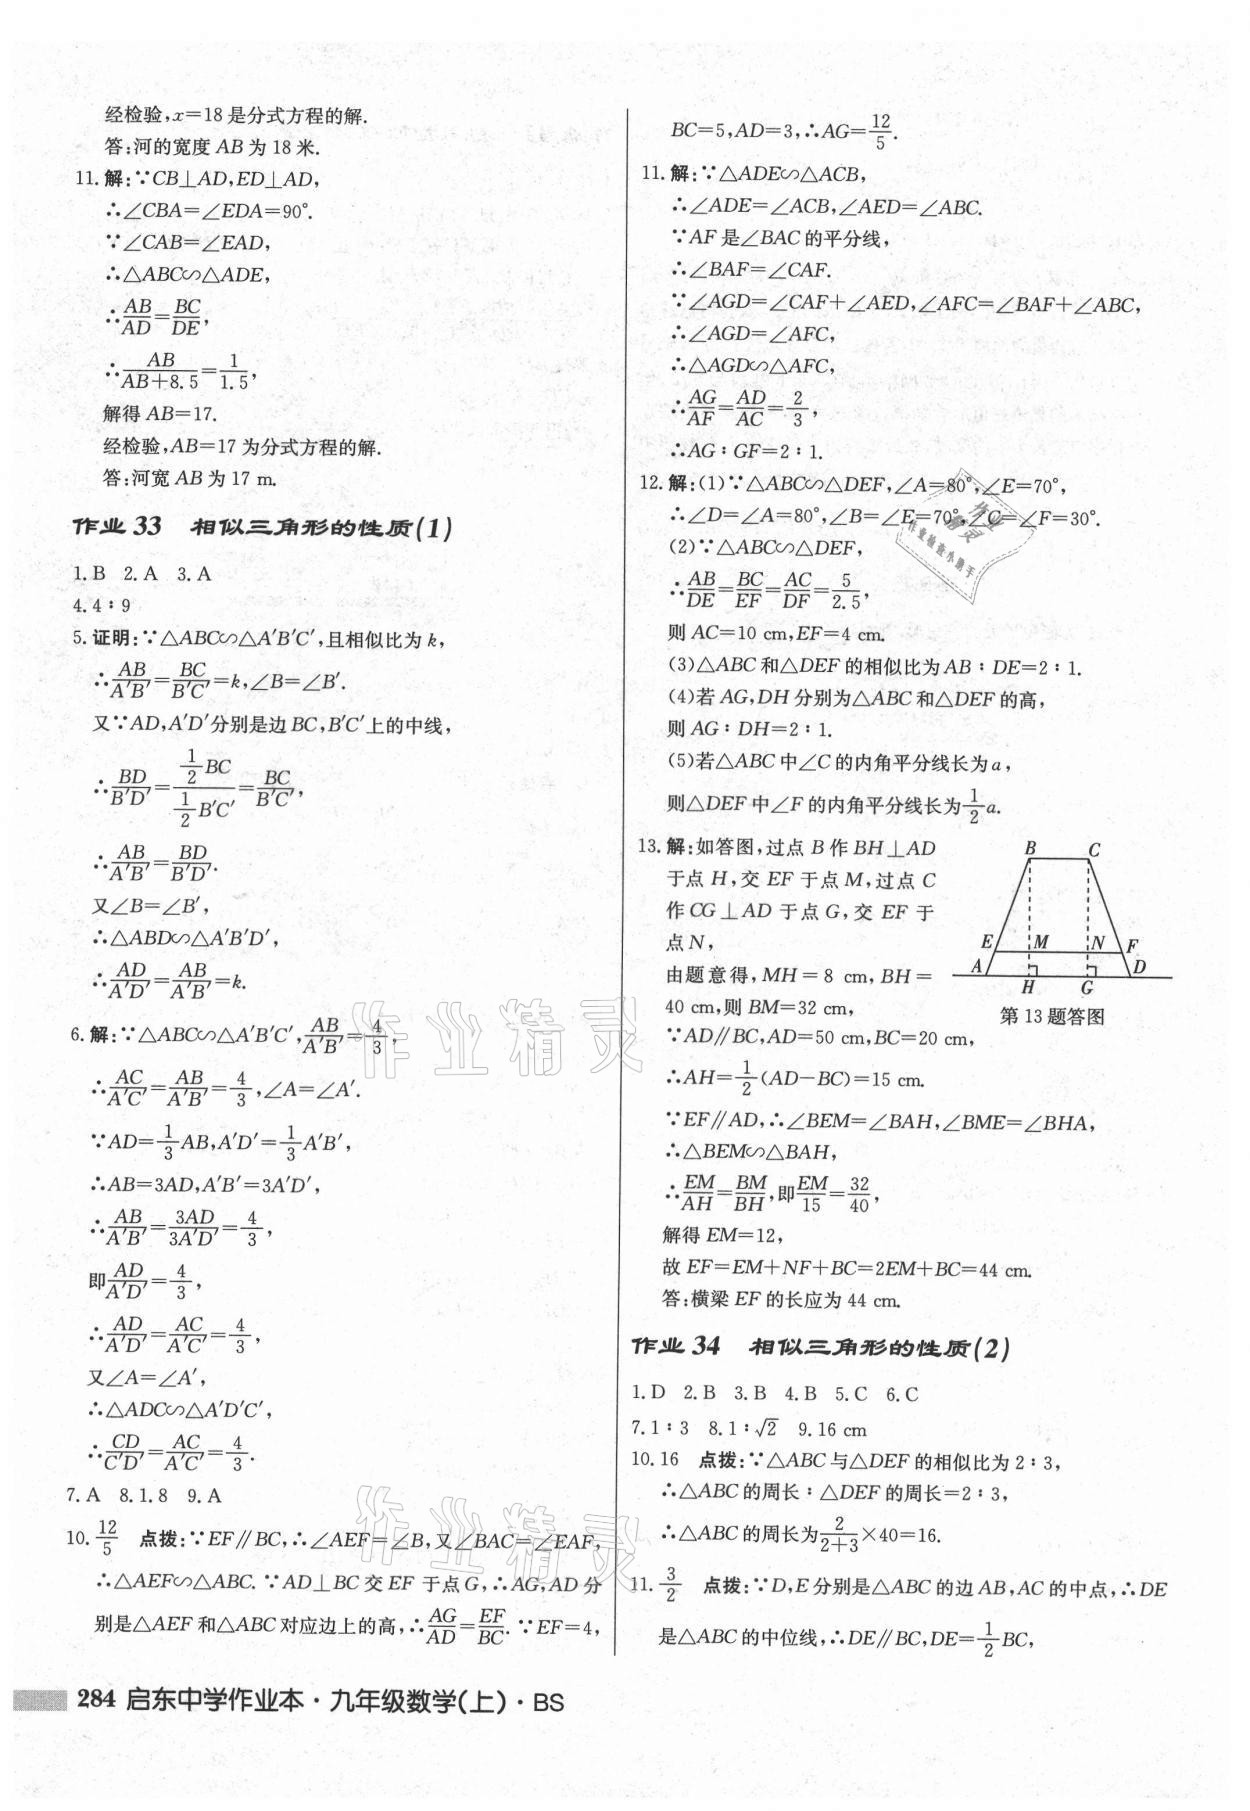 经检验,x=18是分式方程的解.
答:河的宽度AB为18米.
11.解:∵CB⊥AD,ED⊥AD,
∴∠CBA=∠EDA=90°.
∵∠CAB=∠EAD,
∴△ABC∽△ADE,
∴AB/AD=BC/DE,
∴AB/(AB+8.5)=1/1.5,
解得AB=17.
经检验,AB=17为分式方程的解.
答:河宽AB为17 m.
作业33 相似三角形的性质(1)
1.B 2.A 3.A
4.4∶9
5.证明:∵△ABC∽△A′B′C′,且相似比为k,
∴AB/A′B′=BC/B′C′=k,∠B=∠B′.
又∵AD,A′D′分别是边BC,B′C′上的中线,
∴BD/B′D′=(1/2 BC)/(1/2 B′C′)=BC/B′C′,
∴AB/A′B′=BD/B′D′.
又∠B=∠B′,
∴△ABD∽△A′B′D′,
∴AD/A′D′=AB/A′B′=k.
6.解:∵△ABC∽△A′B′C′,AB/A′B′=4/3,
∴AC/A′C′=AB/A′B′=4/3,∠A=∠A′.
∵AD=1/3 AB,A′D′=1/3 A′B′,
∴AB=3AD,A′B′=3A′D′,
∴AB/A′B′=3AD/3A′D′=4/3,
即AD/A′D′=4/3,
∴AD/A′D′=AC/A′C′=4/3,
又∠A=∠A′,
∴△ADC∽△A′D′C′,
∴CD/C′D′=AC/A′C′=4/3.
7.A 8.1.8 9.A
10.12/5 点拨:∵EF∥BC,∴∠AEF=∠B,又∠BAC=∠EAF,
∴△AEF∽△ABC.∵AD⊥BC交EF于点G,∴AG,AD分
别是△AEF和△ABC对应边上的高,∴AG/AD=EF/BC.∵EF=4,
BC=5,AD=3,∴AG=12/5.
11.解:∵△ADE∽△ACB,
∴∠ADE=∠ACB,∠AED=∠ABC.
∵AF是∠BAC的平分线,
∴∠BAF=∠CAF.
∵∠AGD=∠CAF+∠AED,∠AFC=∠BAF+∠ABC,
∴∠AGD=∠AFC,
∴△AGD∽△AFC,
∴AG/AF=AD/AC=2/3,
∴AG∶GF=2∶1.
12.解:(1)∵△ABC∽△DEF,∠A=80°,∠E=70°,
∴∠D=∠A=80°,∠B=∠E=70°,∠C=∠F=30°.
(2)∵△ABC∽△DEF,
∴AB/DE=BC/EF=AC/DF=5/2.5,
则AC=10 cm,EF=4 cm.
(3)△ABC和△DEF的相似比为AB∶DE=2∶1.
(4)若AG,DH分别为△ABC和△DEF的高,
则AG∶DH=2∶1.
(5)若△ABC中∠C的内角平分线长为a,
则△DEF中∠F的内角平分线长为1/2 a.
13.解:如答图,过点B作BH⊥AD
于点H,交EF于点M,过点C
作CG⊥AD于点G,交EF于
点N,
由题意得,MH=8 cm,BH=
40 cm,则BM=32 cm,
B C
E M N F
A H G D
第13题答图
∵AD∥BC,AD=50 cm,BC=20 cm,
∴AH=1/2(AD−BC)=15 cm.
∵EF∥AD,∴∠BEM=∠BAH,∠BME=∠BHA,
∴△BEM∽△BAH,
∴EM/AH=BM/BH,即EM/15=32/40,
解得EM=12,
故EF=EM+NF+BC=2EM+BC=44 cm.
答:横梁EF的长应为44 cm.
作业34 相似三角形的性质(2)
1.D 2.B 3.B 4.B 5.C 6.C
7.1∶3 8.1∶√2 9.16 cm
10.16 点拨:∵△ABC与△DEF的相似比为2∶3,
∴△ABC的周长∶△DEF的周长=2∶3,
∴△ABC的周长为2/(2+3)×40=16.
11.3/2 点拨:∵D,E分别是△ABC的边AB,AC的中点,∴DE
是△ABC的中位线,∴DE∥BC,DE=1/2 BC,
284 启东中学作业本·九年级数学(上)·BS
作业精灵
作业精灵
作业精灵
作业检查小助手